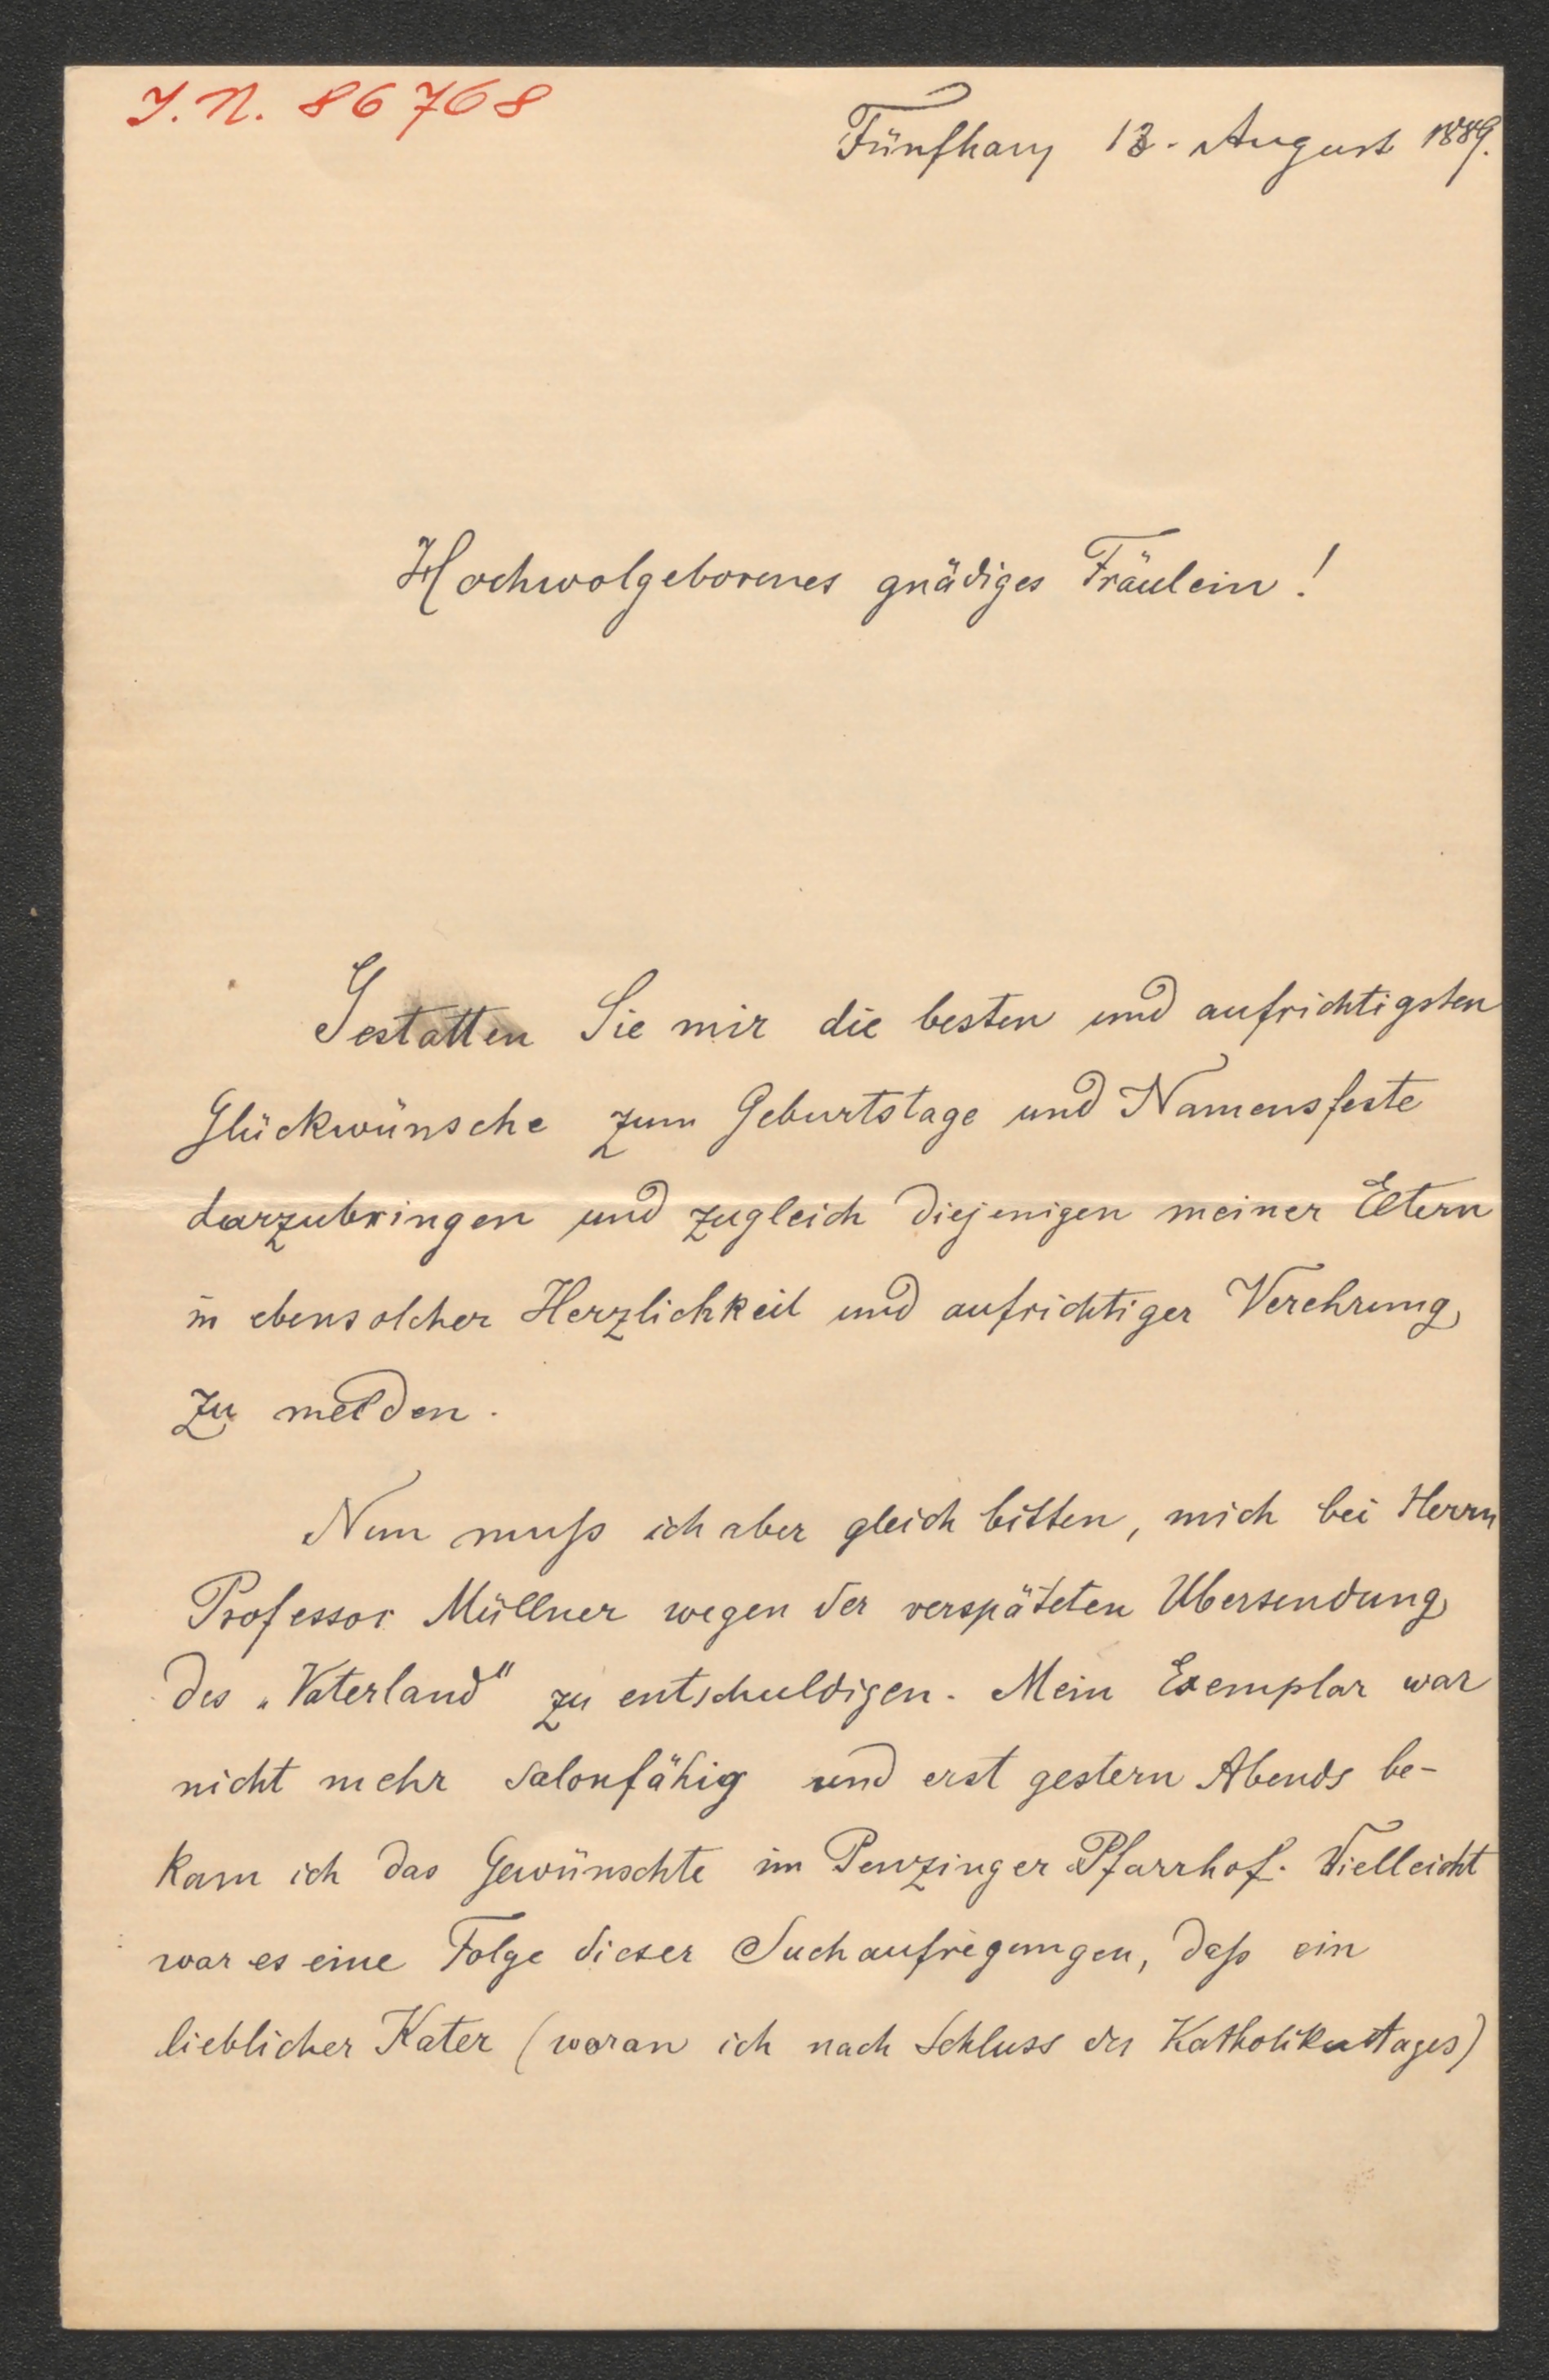 J. N. 86768
Fünfhaus 13. August 1889.
Hochwolgeborenes gnädiges Fräulein!
Gestatten Sie mir die besten und aufrichtigsten
Glückwünsche zum Geburtstage und Namensfeste
darzubringen und zugleich diejenigen meiner Eltern
in ebensolcher Herzlichkeit und aufrichtiger Verehrung
zu melden.
Nun muß ich aber gleich bitten, mich bei Herrn
Professor Müllner wegen der verspäteten Übersendung
des „Vaterland" zu entschuldigen. Mein Exemplar war
nicht mehr salonfähig und erst gestern Abends be-
kam ich das Gewünschte im Penzinger Pfarrhof. Vielleicht
war es eine Folge dieser Suchaufregungen, daß ein
lieblicher Kater (woran ich nach Schluss des Katholikentages)